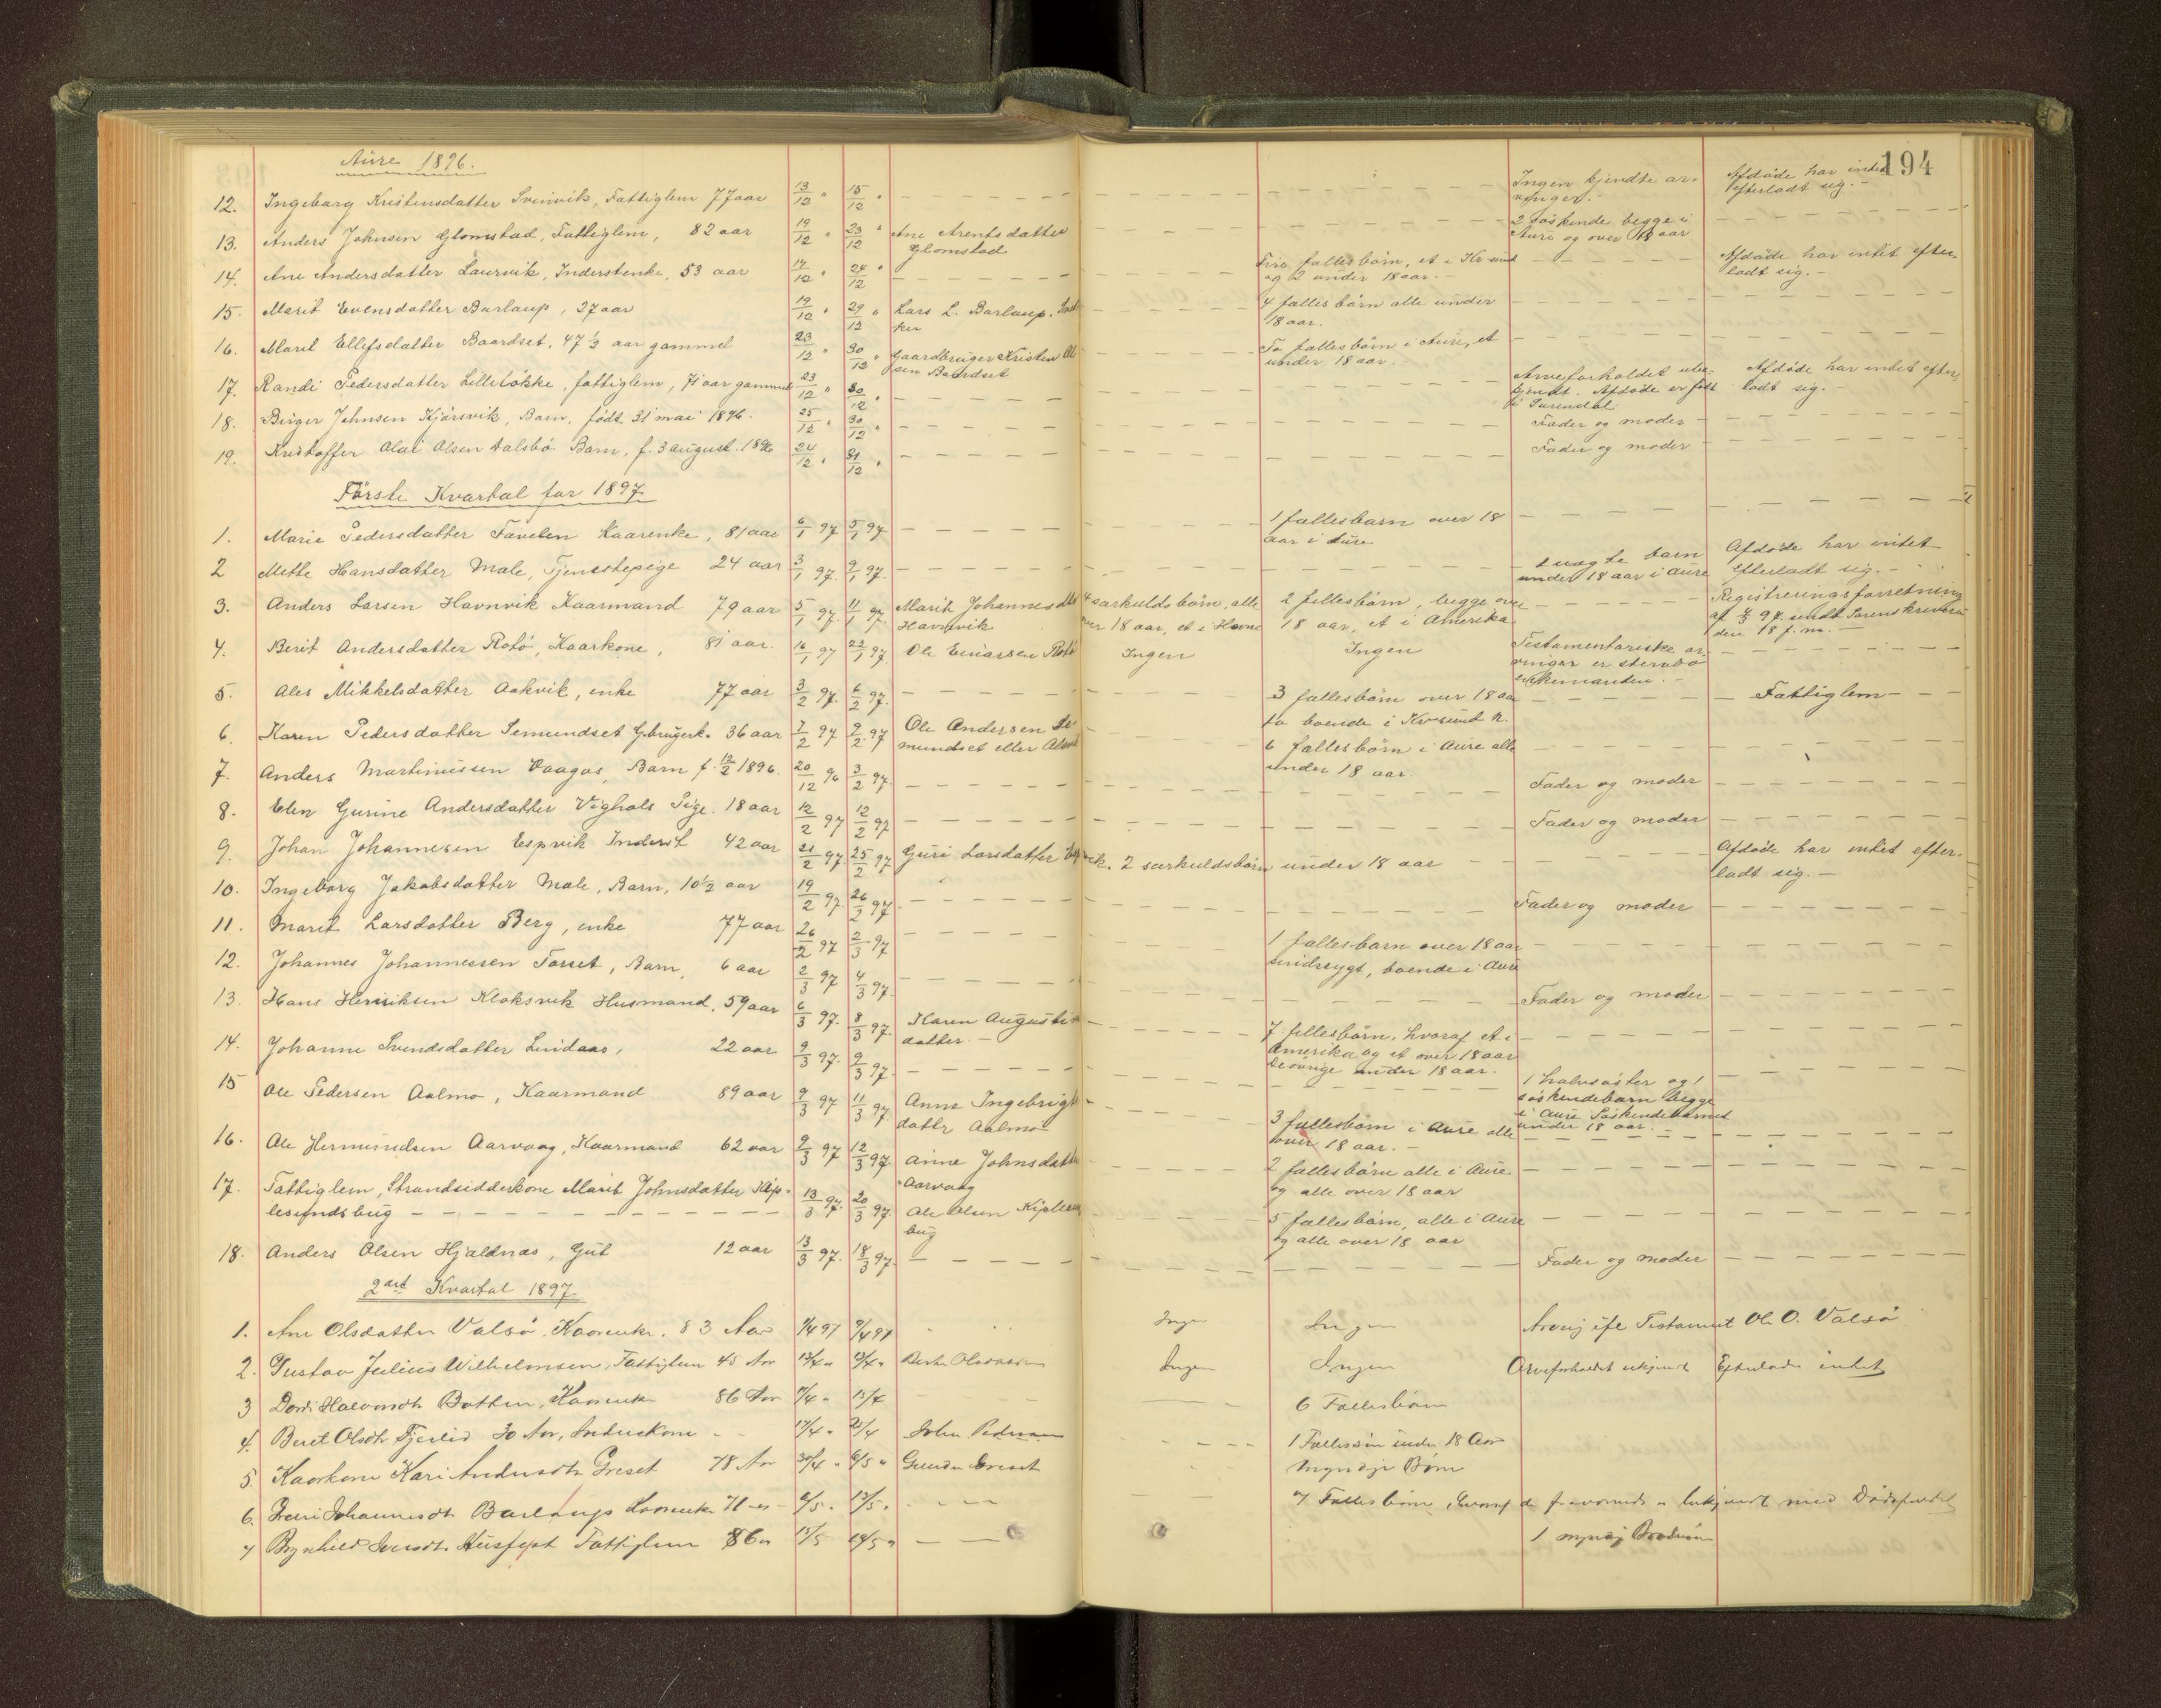 194
Aure 1896.
12. Ingeborg Kristensdatter Svinvik, Fattiglem 77 aar 13/12 " 15/12 " Ingen kjendte ar- Afdøde har intet
vinger. - efterladt sig. -
13. Anders Johnsen Glomstad, Fattiglem, 82 aar 19/12 " 23/12 " Ane Arentsdatter 2 søskende begge i
Glomstad Aure og over 18 aar
14. Ane Andersdatter Laurvik, Inderstenke, 53 aar 17/12 " 24/12 " Fire fællesbørn, et i Kr-sund Afdøde har intet efter-
og 2 under 18 aar. - ladt sig. -
15. Marit Evensdatter Barlaup, 27 aar 19/12 " 29/12 " Lars L. Barlaup, 4 fælles børn alle under
18 aar.
16. Marit Ellefsdatter Baardset, 47 1/2 aar gammel 23/12 " 30/12 " Gaardbruger Kristen Ol To fællesbørn i Aure, et
sen Baardset under 18 aar.
17. Randi Pedersdatter Lilleløkke, fattiglem, 71 aar gammel 23/12 " 30/12 " Arveforholdet ube- Afdøde har intet efter,
kjendt. Afdøde er født ladt sig. -
i Surendal
18. Birger Johnsen Kjørsvik, Barn, født 31 mai 1896. 25/12 " 30/12 " Fader og moder
19. Kristoffer Olai Olsen Aalsbø Barn, f. 3 august. 1896 24/12 " 31/12 " Fader og moder
Første Kvartal for 1897
1. Marie Pedersdatter Kaarenke, 81 aar 6/1 97 5/1 97 1 fællesbarn over 18
aar i Aure
2 Mette Hansdatter Male, Tjenestepige 24 aar 3/1 97. 9/1 97. 1 uægte barn Afdøde har intet
under 18 aar i Aure efterladt sig. -
3. Anders Larsen Havnvik Kaarmand 79 aar 5/1 97. 11/1 97. Marit Johannesdtr 4 særkuldsbørn, alle 2 fællesbørn, begge over Registreringsforretning
Havnvik over 18 aar, et i Havne 18 aar, et i Amerika af 97. sendt Sorenskriveren
den 18 f. m. -
4. Berit Andersdatter Rotø, Kaarkone, 81 aar. 16/1 97 22/1 97. Ole Einarsen Rotø Ingen Ingen Testamentariske ar-
vinger er stervbo
enkemanden. -
5. Ales Mikkelsdatter Aakvik, enke 77 aar 3/2 97. 6/2 97. 3 fællesbørn over 18 aar Fattiglem
to boende i Kr-sund k.
6. Karen Pedersdatter Semundset Gbrugerk. 36 aar 7/2 97 9/2 97 Ole Andersen Se-
mundset eller 6 fællesbørn i Aure alle
under 18 aar.
7. Anders Martinussen Vaagos, Barn f. 12/2 1896. 20/12 96 3/2 97. Fader og moder
8. Elen Gurine Andersdatter Vighals Pige. 18 aar 12/2 97 12/2 97 Fader og moder
9. Johan Johannesen Espvik Inderst 42 aar 21/2 97 25/2 97 Guri Larsdatter Espvik. 2 særkuldsbørn under 18 aar Afdøde har intet efter-
ladt sig. -
10. Ingeborg Jakobsdatter Male, Barn, 10 1/2 aar 19/2 97. 26/2 97 Fader og moder
11. Marit Larsdatter Berg, enke 77 aar 26/2 97 2/3 97 1 fællesbarn over 18 aar
sindssygt, boende i Aure
12. Johannes Johannessen Torset, Barn, 6 aar 2/3 97 4/3 97. Fader og moder
13. Hans Henriksen Kloksvik Husmand, 59 aar 6/3 97. 8/3 97. Karen Augustin
datter. - 7 fællesbørn, hvoraf et i
Amerika og et over 18 aar
de øvrige under 18 aar.
14. Johanne Svendsdatter Lindaas, 22 aar 9/3 97. 9/3 97. 1 halvsøster og 1
søskendebarn begge
i Aure Søskendebarnet
under 18 aar.
15 Ole Pedersen Aalmo, Kaarmand 89 aar 9/3 97 11/3 97. Anne Ingebrigt
dattr Aalmo 3 fællesbørn i Aure alle
over 18 aar. -
16. Ole Hermundsen Aarvaag, Kaarmand 62 aar 9/3 97 12/3 97. Anne Johnsdatter
Aarvaag 2 fællesbørn alle i Aure
og alle over 18 aar
17. Fattiglem, Strandsidderkone Marit Johnsdatter Kip-
lesundsbug 13/3 97. 20/3 97. Ole Olsen Kiplesu
bug 5 fællesbørn, alle i Aure
og alle over 18 aar
18. Anders Olsen Hjeldnæs, Gut 12 aar 13/3 97. 18/3 97. Fader og moder
2det Kvartal 1897.
1. Ane Olsdatter Valsø. Kaarenke. 83 Aar 7/4 97 9/4 97 Ingen Ingen Arving ifl Testament Ole O. Valsø
2. Gustav Julius Wilhelmsen, Fattiglem 45 Aar 13/4 " Ingen Ingen Arveforholdet ukjendt Efterlader intet
3 Halvorsdtr Botten, Kaarenke 86 Aar 7/4 " 13/4 6 Fællesbørn
4. Beret Olsdtr Fjeilid 30 Aar, Inderkone 17/4 " 25/4 John Pedersen 1 Fællesbørn under 18 Aar
5. Kaarkone Kari Andersdtr Greset 78 Aar 30/4 " 6/5 " Gunder Greset Myndige Børn
6. Johannesdt. Barlaup Kaarenke 71 8/5 " 13/5 " 7 Fællesbørn, hvoraf
7 Ragnhild Husfest Fattiglem 86 " 15/5 1 myndig